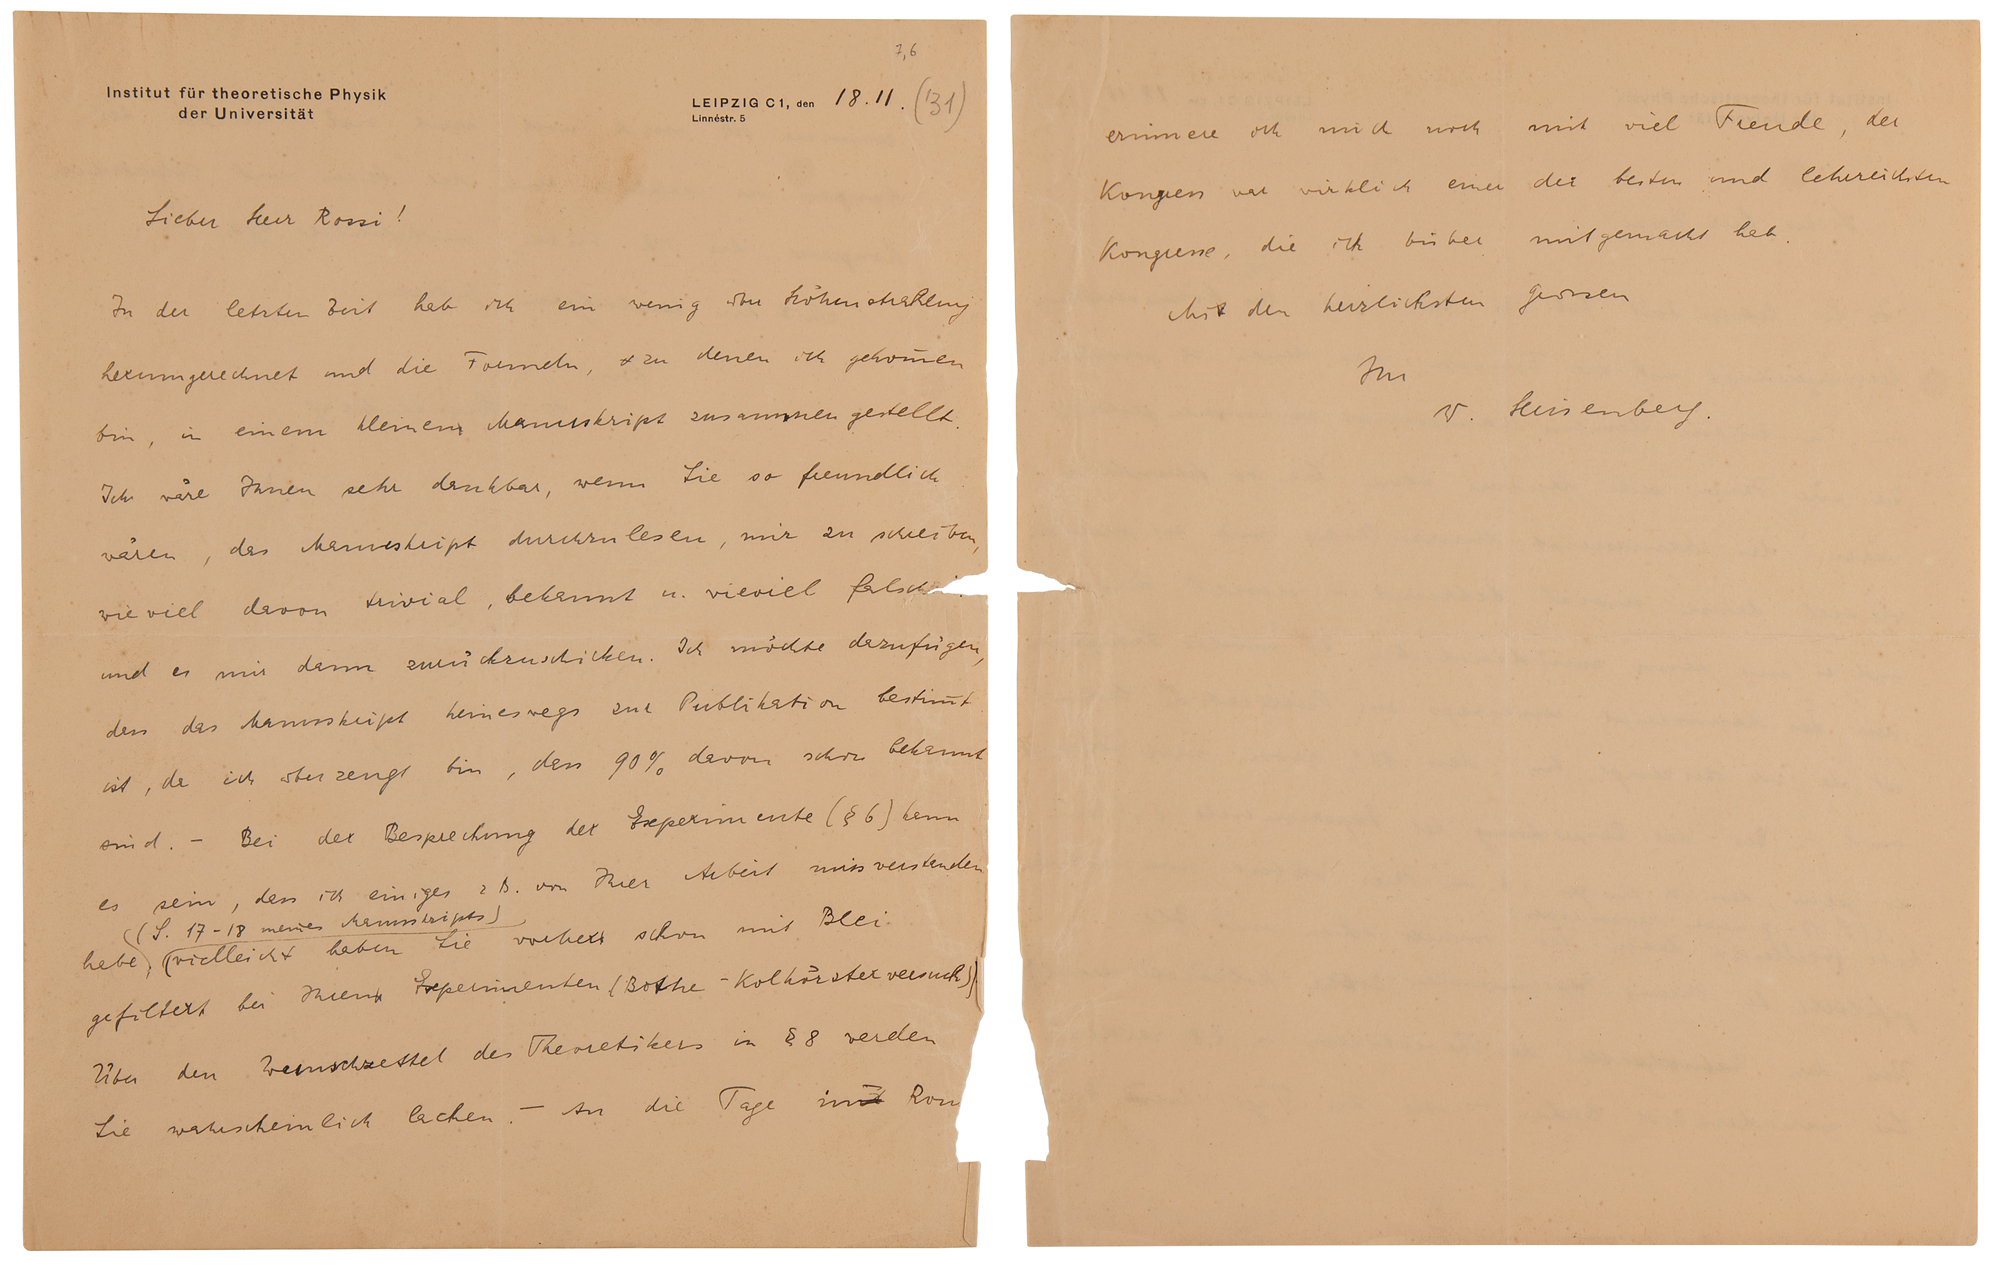 7,6
Institut für theoretische Physik
der Universität
LEIPZIG C 1, den 18.11. (31)
Linnéstr. 5
Lieber Herr Rossi!
In der letzten Zeit hab ich ein wenig über Höhenstrahlung
herumgerechnet und die Formeln, zu denen ich gekom̄en
bin, in einem kleinen Manuskript zusammengestellt.
Ich wäre Ihnen sehr dankbar, wenn Sie so freundlich
wären, das Manuskript durchzulesen, mir zu schreiben,
wieviel davon trivial, bekannt u. wieviel falsch
und es mir dann zurückzuschicken. Ich möchte dazufügen,
dass das Manuskript keineswegs zur Publikation bestim̄t
ist, da ich überzeugt bin, dass 90% davon schon bekannt
sind. – Bei der Besprechung der Experimente (§ 6) kann
es sein, dass ich einiges z.B. von Ihrer Arbeit missverstanden
(S. 17-18 meines Manuskripts)
habe, (vielleicht haben Sie vorher schon mit Blei
gefiltert bei Ihren Experimenten (Bothe-Kolhörsterversuch)).
Über den Wunschzettel des Theoretikers in § 8 werden
Sie wahrscheinlich lachen. – An die Tage in Rom
erinnere ich mich noch mit viel Freude, der
Kongress war wirklich einer der besten und lehrreichsten
Kongresse, die ich bisher mitgemacht hab.
Mit den herzlichsten Grüssen
Ihr
W. Heisenberg.